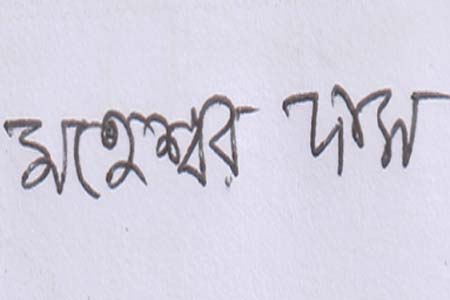 মহেশ্বর দাস